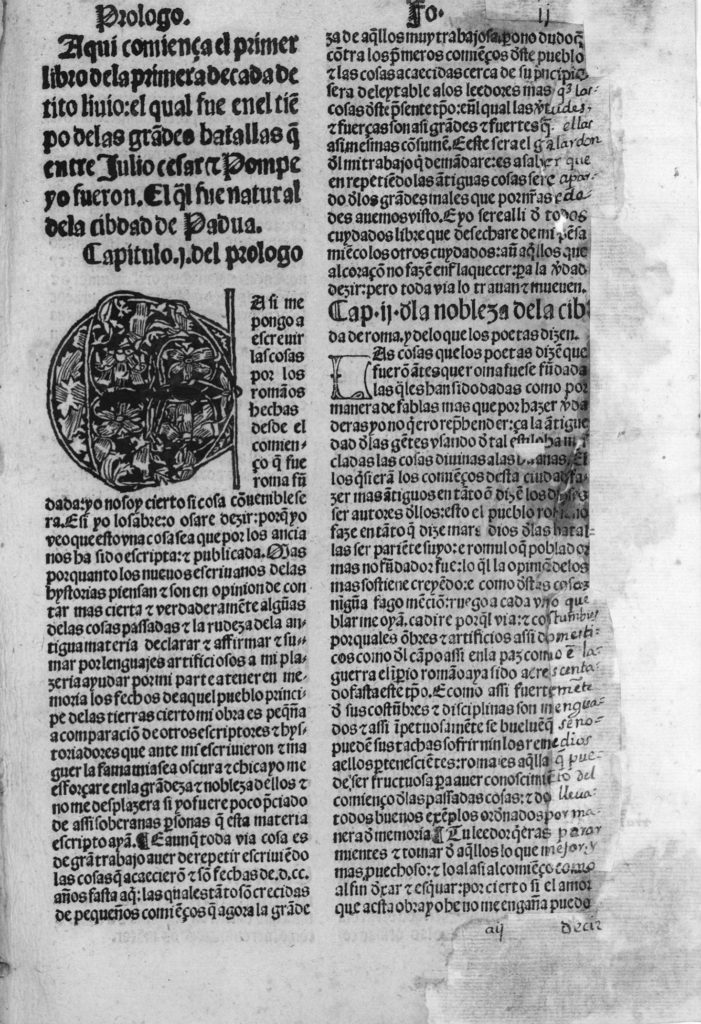 Prologo.
Fo. ij
Aqui comiença el primer
libro dela primera decada de
tito liuio: el qual fue enel tiẽ
po delas grãdes batallas q̃
entre Julio cesar ⁊ Pompe
yo fueron. El q̃l fue natural
dela cibdad de Padua.
Capitulo .j. del prologo
A si me
pongo a
escreuir
las cosas
por los
romãos
hechas
desde el
comien-
ço q̃ fue
roma fũ
dada: yo no soy cierto si cosa cõuenible se
ra. E si yo lo sabre: o osare dezir: porq̃ yo
veo que esto vna cosa sea que por los ancia
nos ha sido escripta: ⁊ publicada. Mas
por quanto los nueuos escriuanos de las
hystorias piensan ⁊ son en opinion de con
tar mas cierta ⁊ verdaderamẽte algũas
delas cosas passadas ⁊ la rudeza dela an-
tigua materia declarar ⁊ affirmar ⁊ su-
mar por lenguajes artificiosos a mi pla-
zeria ayudar por mi parte a tener en me-
moria los fechos de aquel pueblo princi-
pe delas tierras cierto mi obra es peq̃ña
a comparaciõ de otros escriptores ⁊ hys-
toriadores que ante mi escriuieron ⁊ ma
guer la fama mia sea oscura ⁊ chica yo me
esforçare en la grãdeza ⁊ nobleza dellos ⁊
no me desplazera si yo fuere poco p̃ciado
de assi soberanas p̃sonas q̃ esta materia
escripto ayã. ¶ E aunq̃ toda via cosa es
de grã trabajo auer de repetir escriuiẽdo
las cosas q̃ acaecierõ ⁊ sõ fechas de .d.cc.
años fasta aq̃: las quales tãto sõ crecidas
de pequeños comiẽços q̃ agora la grãde
za de aq̃llos muy trabajosa. po no dudo q̃
cõtra los p̃meros comiẽços d̃ste pueblo
⁊ las cosas acaecidas cerca de su p̃ncipio
sera deleytable a los leedores mas q̃ las
cosas d̃ste p̃sente tp̃o: enl qual las v̾tudes
⁊ fuerças son asi grãdes ⁊ fuertes q̃ ellas
asi mesmas cõsumẽ. E este sera el galardon
d̃l mi trabajo q̃ demãdare: es a saber que
en repetiẽdo las ãtiguas cosas sere apar-
do d̃los grãdes males que por nr̃as eda-
des auemos visto. E yo sere alli d̃ todos
cuydados libre que desechare de mi pẽsa
miẽco los otros cuydados: aũ aq̃llos que
al coraçõ no fazẽ enflaquecer: pa la v̾dad
dezir: pero toda via lo trauan ⁊ mueuen.
Cap. ij. d̃la nobleza dela cib
dad de roma. y delo que los poetas dizen.
LAs cosas que los poetas dizẽ que
fuerõ ãtes que roma fuese fũdada
las q̃les han sido dadas como por
manera de fablas mas que por hazer v̾da
deras yo no q̃ero rep̃hender: ca la ãtigue
dad d̃las gẽtes vsando d̃ tal estilo ha m
cladas las cosas diuinas a las El
los q̃si erã los comiẽços desta ciudad fa
zer mas ãtiguos en tãto õ dizẽ los dioses
ser autores d̃llos: esto el pueblo romano
faze en tãto q̃ dize mars dios d̃las batal-
las ser pariẽte suyo: e romulo q̃ poblador
mas no fũdador fue: lo q̃l la opiniõ delos
mas sostiene creyẽdo: e como d̃stas cosas
nigũa fago mẽciõ: ruego a cada vno que
blar me oyã. ca dire por q̃l via: ⁊ costumbres
por quales õbres ⁊ artificios assi domesti-
cos como d̃l cãpo assi en la paz como ẽ la
guerra el ip̃rio romão aya sido acrescenta-
do fasta este tp̃o. E como assi fuertemẽte
d̃ sus costũbres ⁊ disciplinas son mengua-
dos ⁊ assi ĩpetuosamẽte se bueluẽ q̃ se no
puedẽ sus tachas sofrir nin los remedios
aellos p̃tenescientes: roma es aq̃lla q̃ pue-
de ser fructuosa pa auer conoscimiẽto del
comienço d̃las passadas cosas: ⁊ do lleua-
todos buenos exẽplos ordẽnados por ma-
nera d̃ memoria ¶ Tu leedor q̃eras parar
mientes ⁊ tomar d̃ aq̃llos lo que mejor. y
mas puechoso: ⁊ lo al asi al comiẽço como
al fin d̃xar ⁊ esquiar: por cierto si el amor
que a esta obra yo he no me engaña puedo
aij
decir